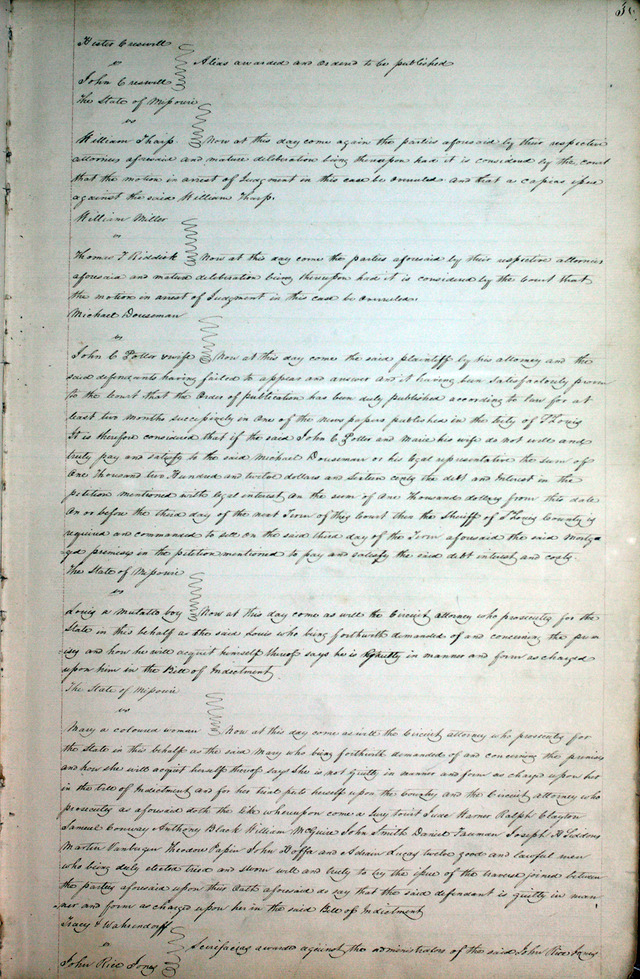 Hester Creswell
vs
Alias awarded and ordered to be published
John Creswell
The State of Missouri
vs
William Tharp Now at this day come again the parties aforesaid by their respective
attornies aforesaid and mature deliberation being thereupon had it is considered by the court
that the motion in arrest of Judgment in this case be overruled and that a capias issue
against the said William Tharp.
William Miller
vs
Thomas F Riddick Now at this day come the parties aforesaid by their respective attornies
aforesaid and mature deliberation being thereupon had it is considered by the Court that
the motion in arrest of Judgment in this case be overruled.
Michael Douseman
vs
John C Potter & wife Now at this day come the said plaintiff by his attorney and the
said defendants having failed to appear and answer and it having been satisfactorily proven
to the Court that the Order of publication has been duly published according to law for at
least two months successively in one of the news papers published in the City of St Louis
It is therefore considered that if the said John C Potter and Marie his wife do not well and
truly pay and satisfy to the said Michael Douseman or his legal representative the sum of
One Thousand two Hundred and twelve dollars and sixteen cents the debt and Interest in the
petition mentioned with legal interest on the sum of One Thousand dollars from this date
on or before the third day of the next Term of this Court then the Sheriff of St Louis County is
required and commanded to sell on the said third day of the Term aforesaid the said Mortga
ged premises in the petition mentioned to pay and satisfy the said debt interest and costs
The State of Missouri
vs
Louis a Mulatto boy Now at this day come as well the Circuit attorney who prosecutes for the
State in this behalf as the said Louis who being forthwith demanded of and concerning the prem
ises and how he will acquit himself thereof says he is guilty in manner and form as charged
upon him in the Bill of Indictment
The State of Missouri
vs
Mary a coloured woman Now at this day come as well the Circuit attorney who prosecutes for
the State in this behalf as the said Mary who being forthwith demanded of and concerning the premises
and how she will acquit herself thereof says She is not guilty in manner and form as charged upon her
in the bill of Indictment and for her trial puts herself upon the Country and the Circuit attorney who
prosecutes as aforesaid doth the like whereupon come a Jury to wit Ralph Clayton
Samuel Conway Anthony Black William McGuire John Smith Daniel Joseph H
Martin Vanburger Theodore Papin John Hoffa and Adrien Lucas twelve good and lawful men
who being duly elected tried and sworn well and truly to try the issue of the traverse joined between
the parties aforesaid upon their Oath aforesaid do say that the said defendant is guilty in man
ner and form as charged upon her in the said Bill of Indictment
Tracy & Wahrendorff
vs
Scirefacias awarded against the administrators of the said John Rice Jones
John Rice Jones